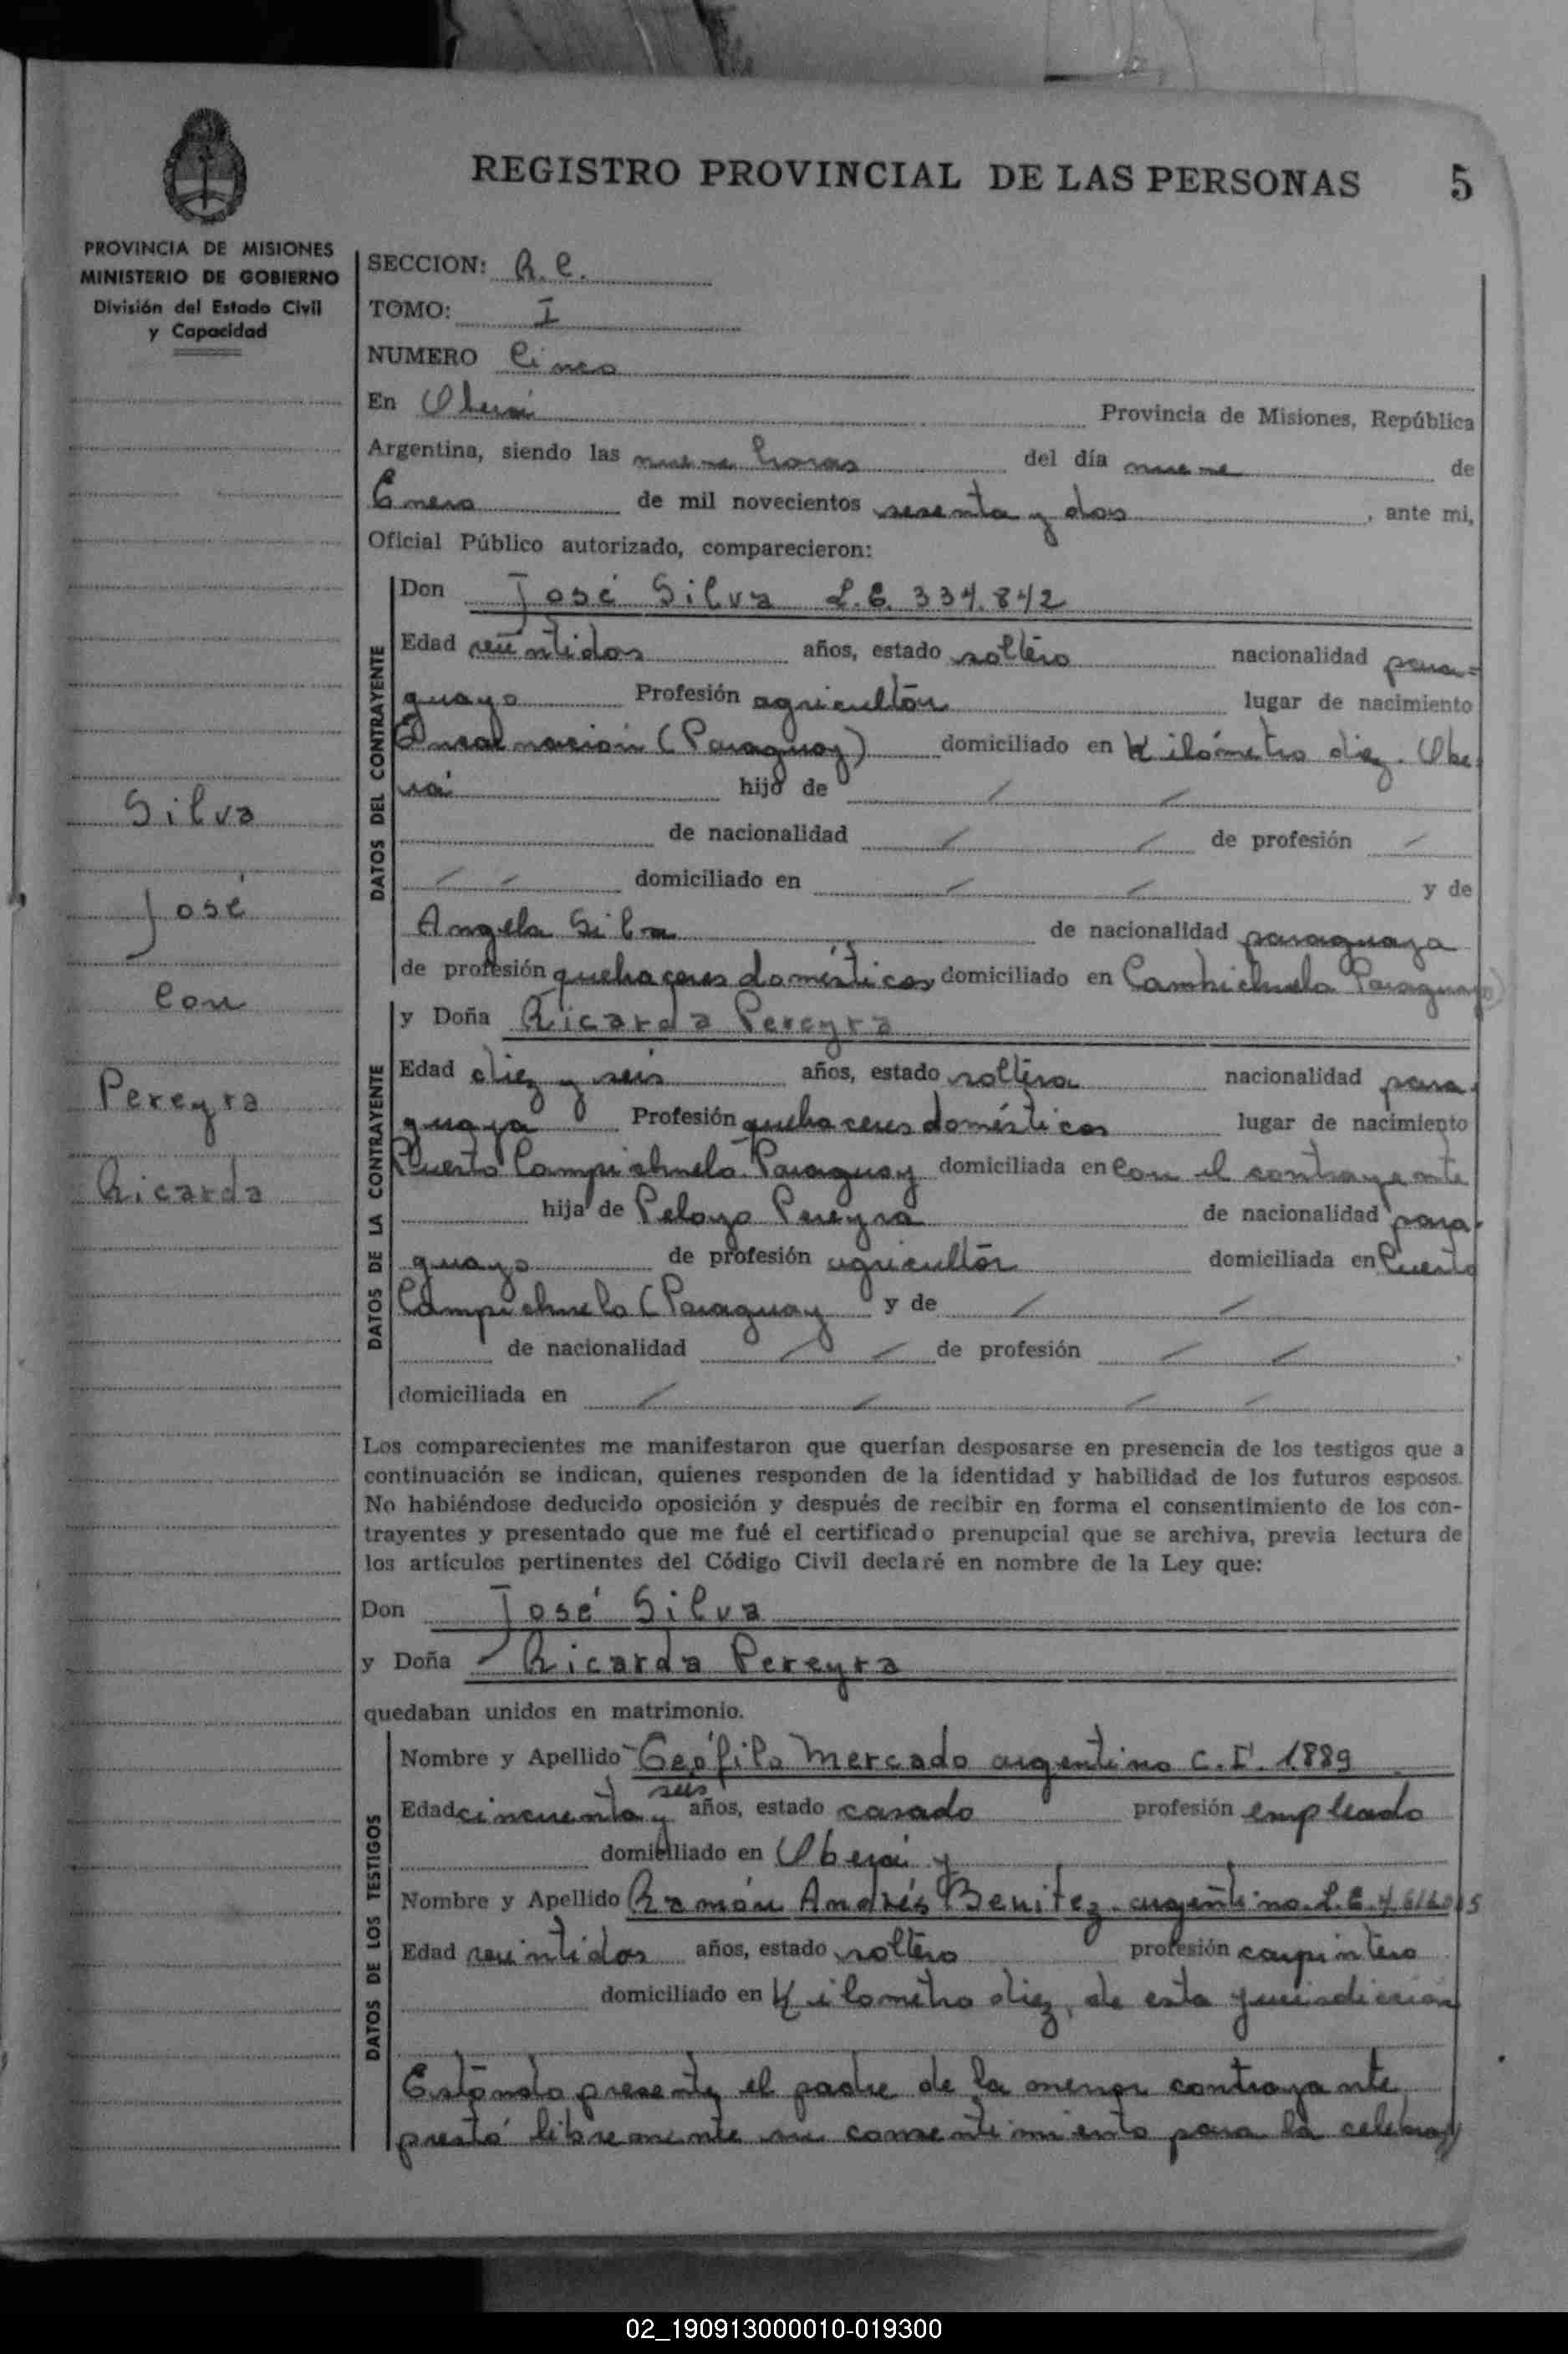 REGISTRO PROVINCIAL DE LAS PERSONAS 5
PROVINCIA DE MISIONES
MINISTERIO DE GOBIERNO
División del Estado Civil
y Capacidad
SECCION: R. C.
TOMO: I
NUMERO Cinco
En Oberá Provincia de Misiones, República
Argentina, siendo las nueve horas del día nueve de
Enero de mil novecientos sesenta y dos, ante mi,
Oficial Público autorizado, comparecieron:
DATOS DEL CONTRAYENTE
Don José Silva L.E. 334.842
Edad veintidos años, estado soltero nacionalidad para=
guayo Profesión agricultor lugar de nacimiento
Encarnación (Paraguay) domiciliado en Kilómetro diez. Obe
rá hijo de / /
de nacionalidad / / de profesión /
/ / domiciliado en / / y de
Angela Silva de nacionalidad paraguaya
de profesión quehaceres domésticos domiciliado en Paraguay)
DATOS DE LA CONTRAYENTE
y Doña Ricarda Pereyra
Edad diez y seis años, estado soltera nacionalidad para-
guaya Profesión quehaceres domésticos lugar de nacimiento
Puerto Campichuelo. Paraguay domiciliada en con el contrayente
hija de Pelayo Pereyra de nacionalidad para-
guayo de profesión agricultor domiciliada en Puerto
Campichuelo (Paraguay y de / /
de nacionalidad / / de profesión / /
domiciliada en / / / /
Los comparecientes me manifestaron que querían desposarse en presencia de los testigos que a
continuación se indican, quienes responden de la identidad y habilidad de los futuros esposos.
No habiéndose deducido oposición y después de recibir en forma el consentimiento de los con-
trayentes y presentado que me fué el certificado prenupcial que se archiva, previa lectura de
los artículos pertinentes del Código Civil declaré en nombre de la Ley que:
Don José Silva
y Doña Ricarda Pereyra
quedaban unidos en matrimonio.
DATOS DE LOS TESTIGOS
Nombre y Apellido Mercado argentino C.I. 1889
seis
Edad cincuenta y años, estado casado profesión empleado
domiciliado en Oberá y
Nombre y Apellido Ramón Andrés Benitez. argentino. L.E.
Edad veintidos años, estado soltero profesión carpintero
domiciliado en Kilometro diez, de esta jurisdicción
Estando presente el padre de la menor contrayente
prestó libremente su consentimiento para la
Silva
José
con
Pereyra
Ricarda
02_190913000010-019300